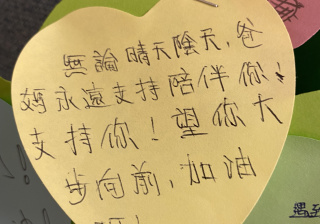 無論晴天陰天,爸
媽永遠支持陪伴你!
支持你!望你大
步向前,加油